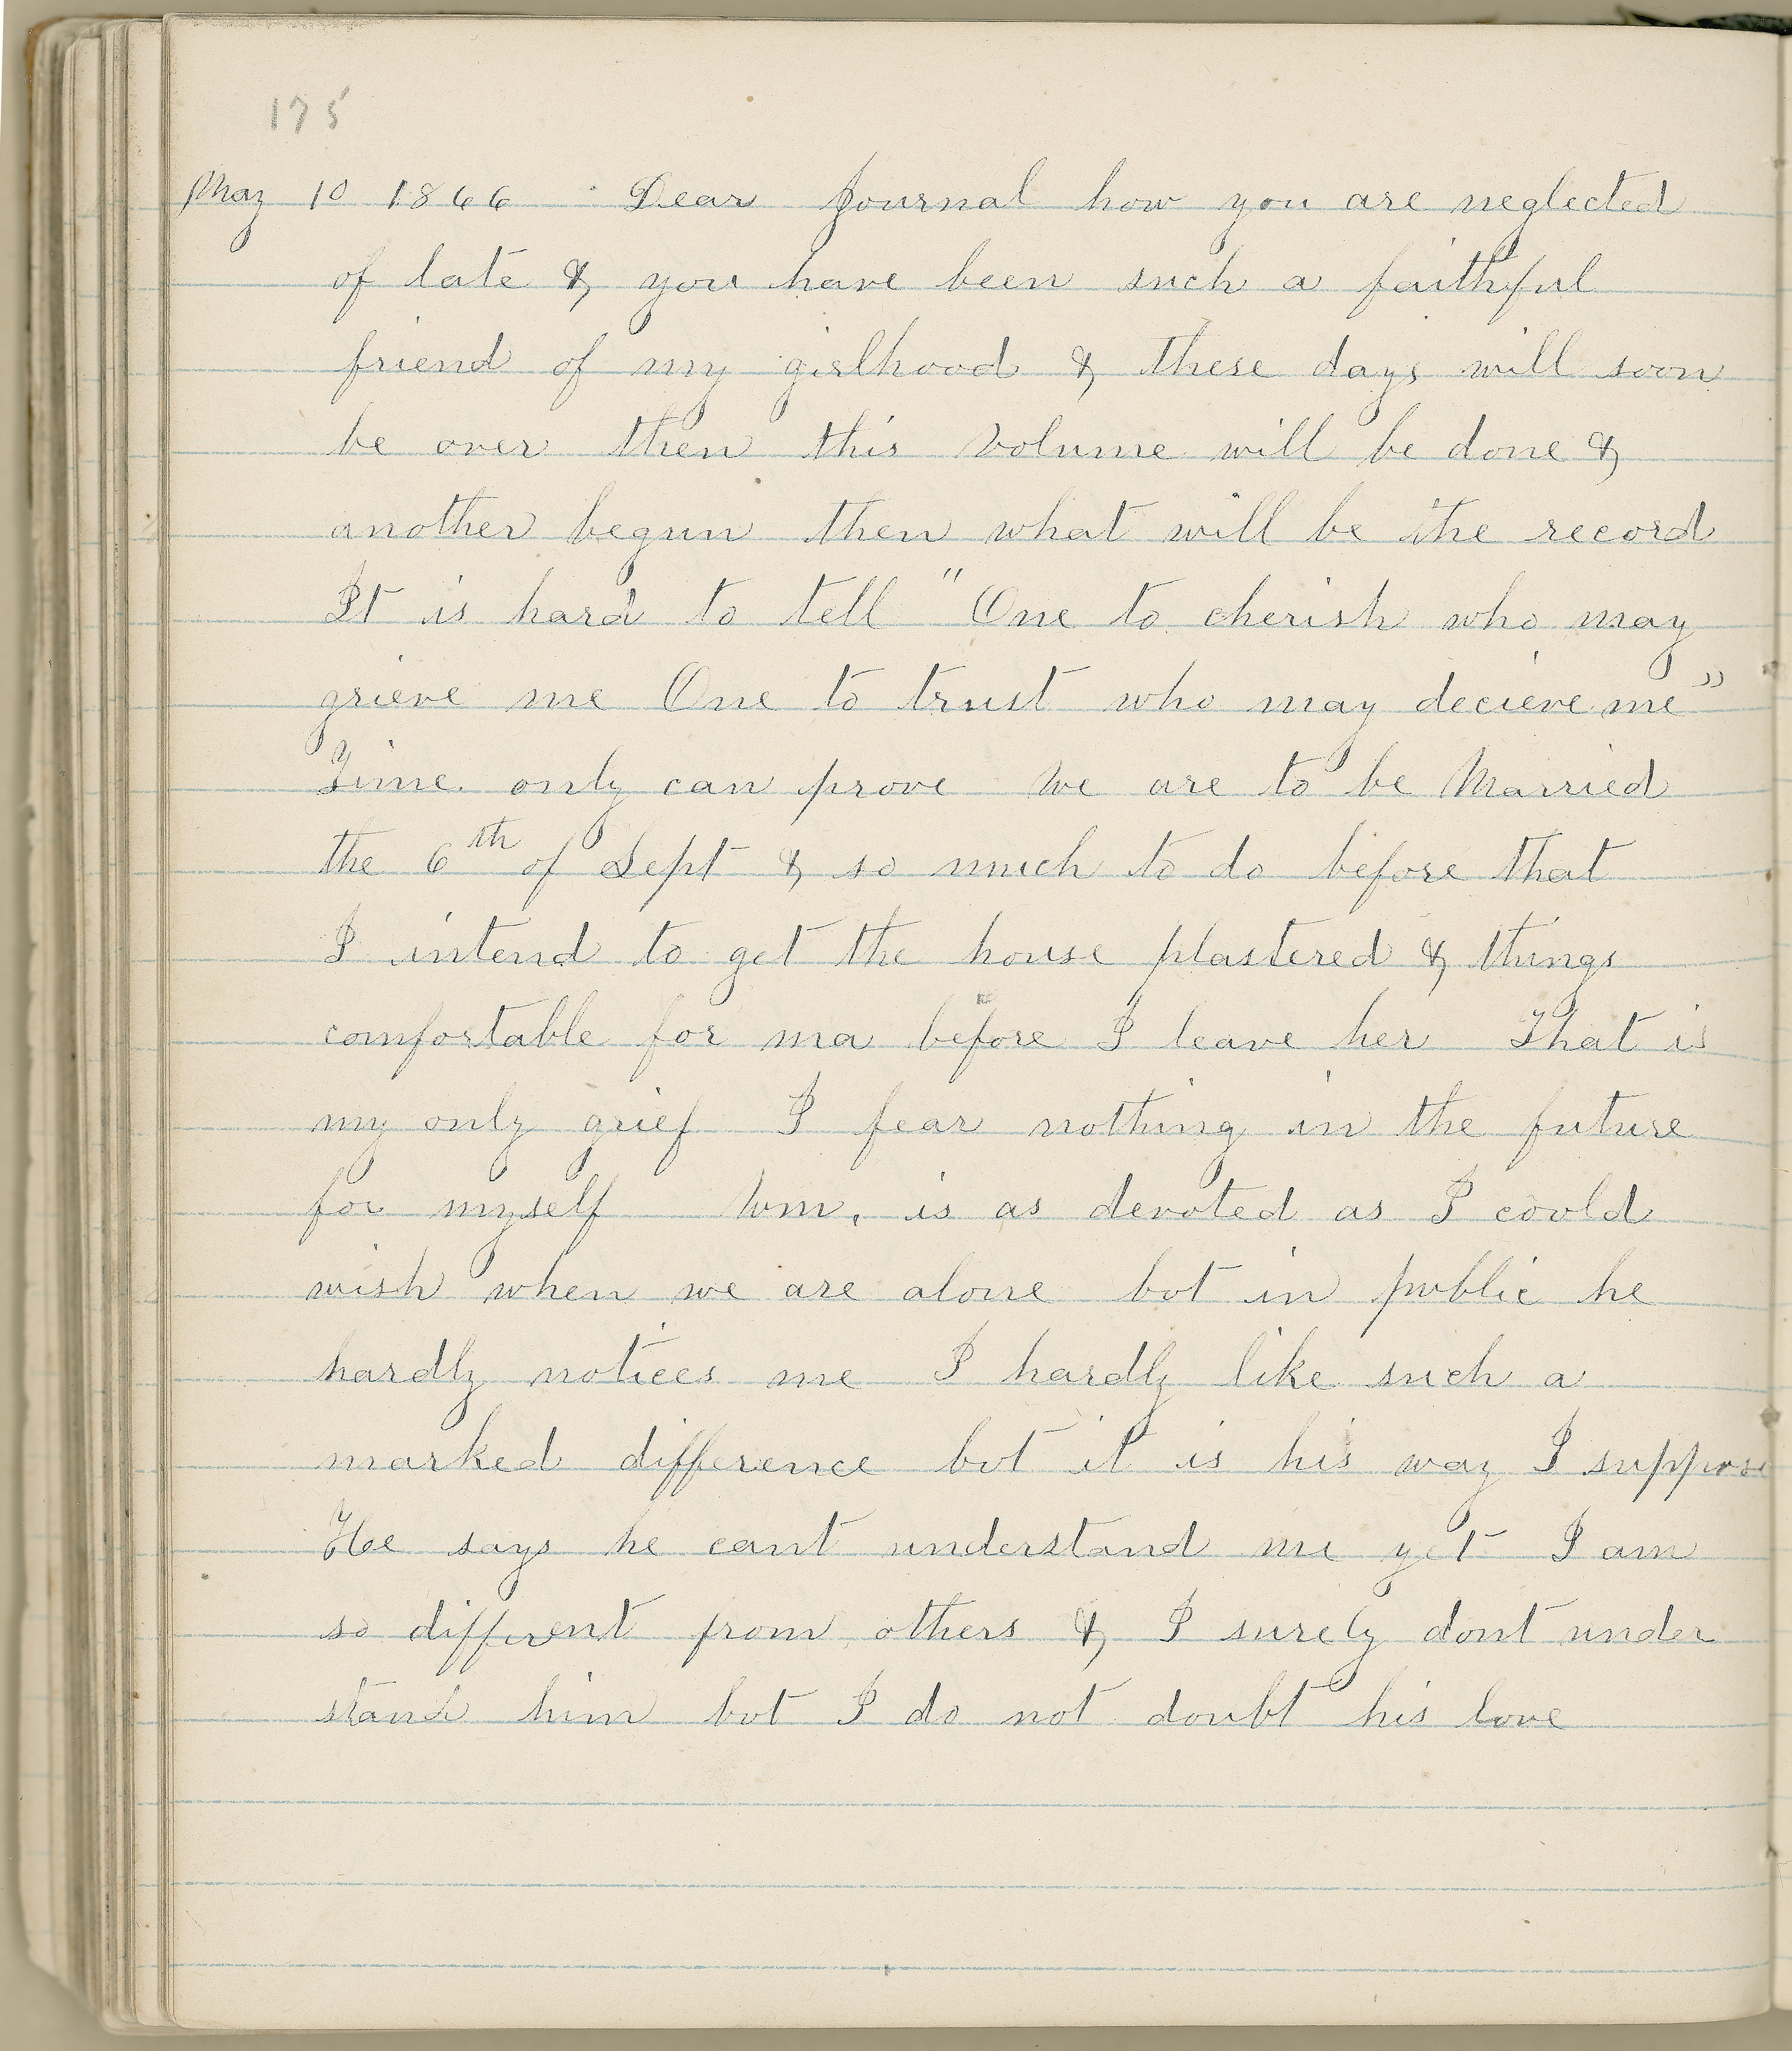 175
May 10 1866 Dear Journal how you are neglected
of late & you have been such a faithful
friend of my girlhood & these days will soon
be over then this volume will be done &
another begun then what will be the record
It is hard to tell "One to cherish who may
grieve me One to trust who may decieve me"
Time only can prove We are to be Married
the 6th of Sept & so much to do before that
I intend to get the house plastered & things
comfortable for ma before I leave her That is
my only grief I fear nothing in the future
for myself Wm. is as devoted as I could
wish when we are alone but in public he
hardly notices me I hardly like such a
marked difference but it is his way I suppose
He says he cant understand me yet I am
so different from others & I surely dont under
stand him but I do not doubt his love